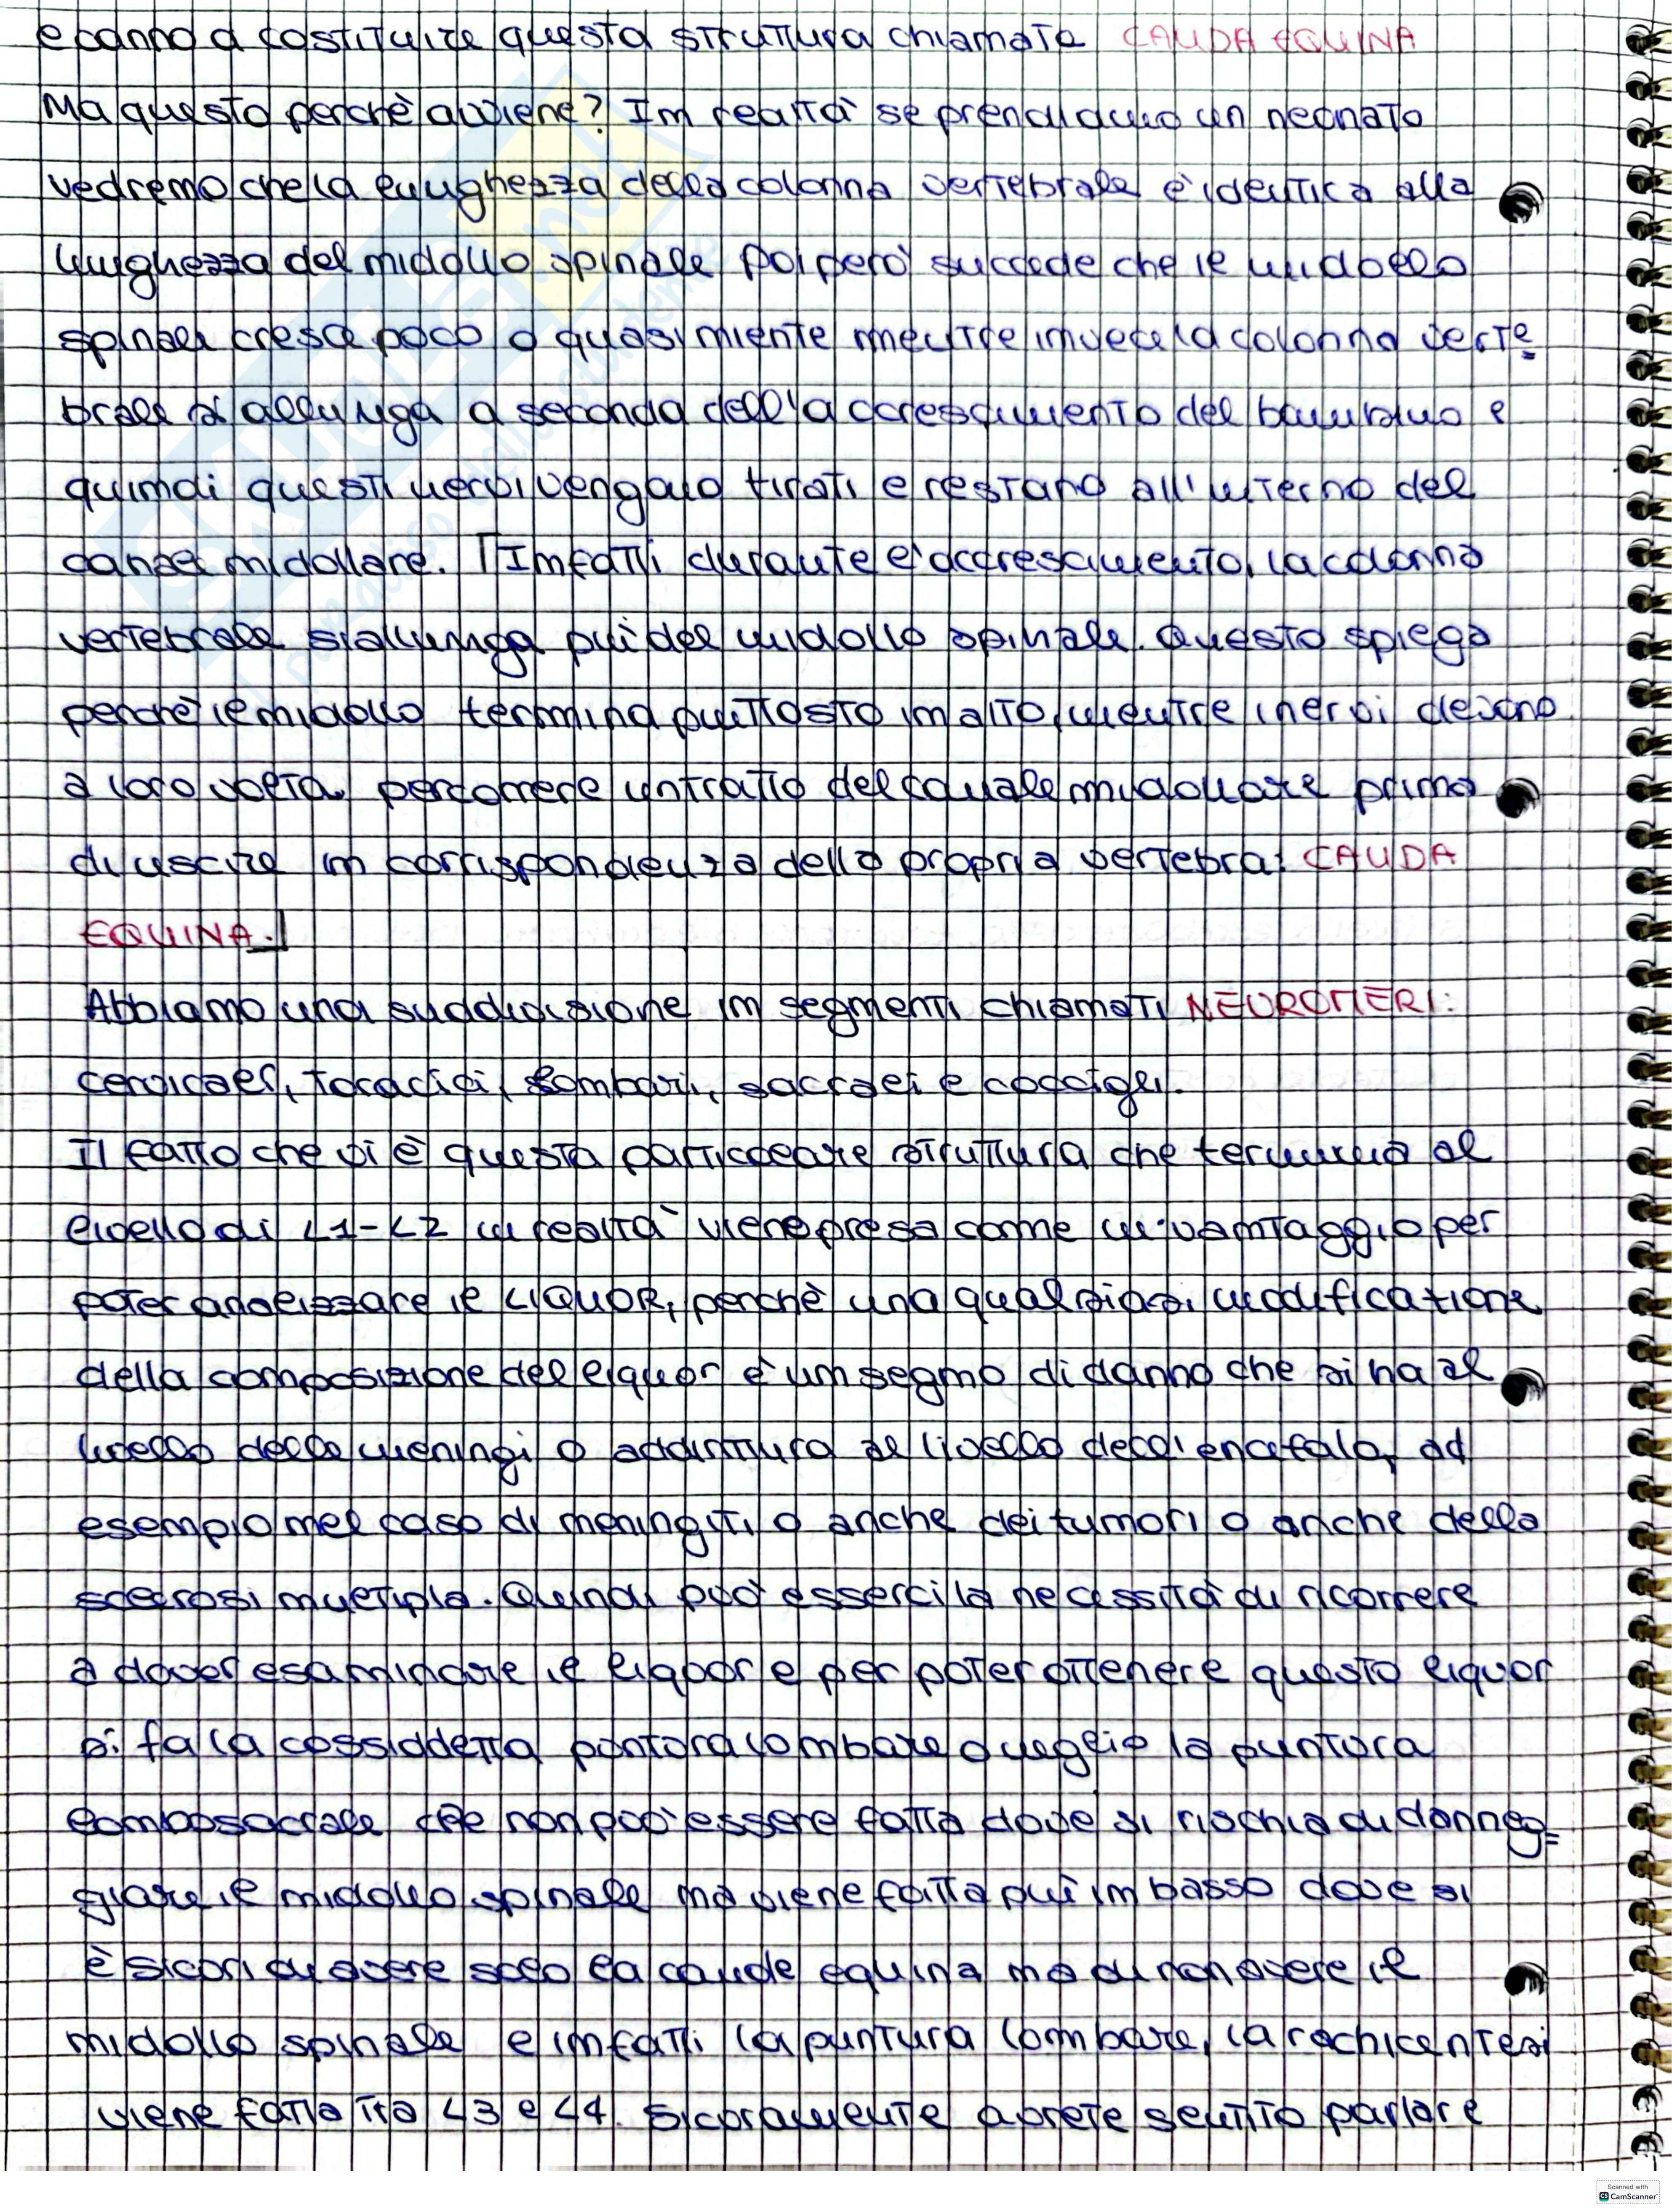 e vanno a costituire questa struttura chiamata CAUDA EQUINA
Ma questo perchè avviene? Im realtà se prendiamo un neonato
vedremo che la lunghezza della colonna vertebrale è identica alla
lunghezza del midollo spinale poi però succede che il midollo
spinale cresce poco o quasi miente mentre imvece la colonna verte=
brale si allunga a seconda dell'accrescimento del bambino e
quimdi questi nervi vengono tirati e restano all'interno del
canale midollare. Imfatti durante l'accrescimento, la colonna
vertebrale si allumga più del midollo spinale. Questo spiega
perchè il midollo termina piuttosto im alto, mentre i nervi devono
a loro volta percorrere un tratto del canale midollare prima
di uscire im corrispondenza della propria vertebra: CAUDA
EQUINA.
Abbiamo una suddivisione im segmenti chiamati NEUROMERI:
cervicali, toracici, lombari, sacrali e coccigei.
Il fatto che vi è questa particolare struttura che termina al
livello di L1-L2 in realtà viene presa come un vamtaggio per
poter analizzare il LIQUOR, perchè una qualsiasi modificazione
della composizione del liquor è um segmo di danno che si ha al
livello delle meningi o addirittura al livello dell'encefalo, ad
esempio mel caso di meningiti o anche dei tumori o anche della
sclerosi multipla. Quindi può esserci la necessità di ricorrere
a dover esaminare il liquor e per poter ottenere questo liquor
si fa la cossiddetta puntura lombare o meglio la puntura
lombosacrale che non può essere fatta dove si rischia di danneg=
giare il midollo spinale ma viene fatta più im basso dove si
è sicuri di avere solo la cauda equina ma di non avere il
midollo spinale e imfatti la puntura lombare, la rachicentesi
viene fatta tra L3 e L4. Sicuramente avrete sentito parlare
Scanned with
CS CamScanner